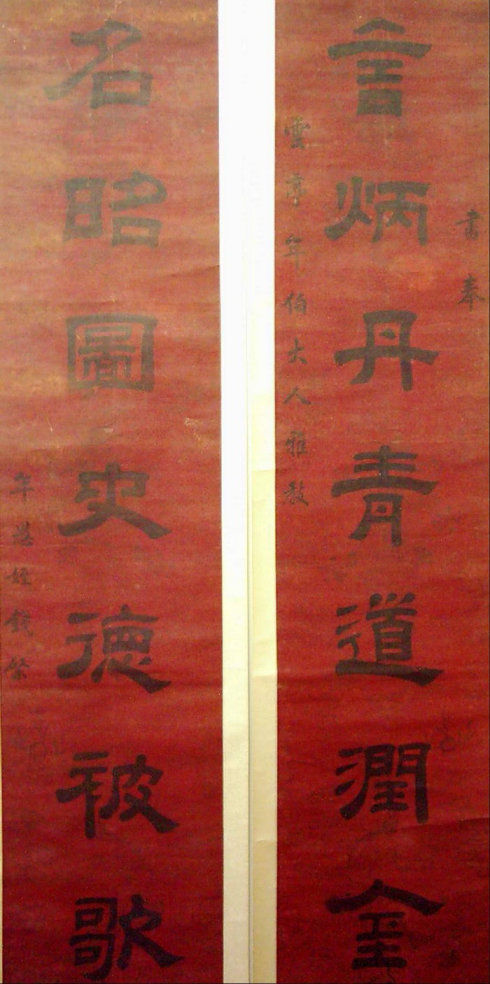 書奉
言炳丹青道潤金
雲亭年伯大人雅教
名昭圖史德被歌
年愚姪錢棨